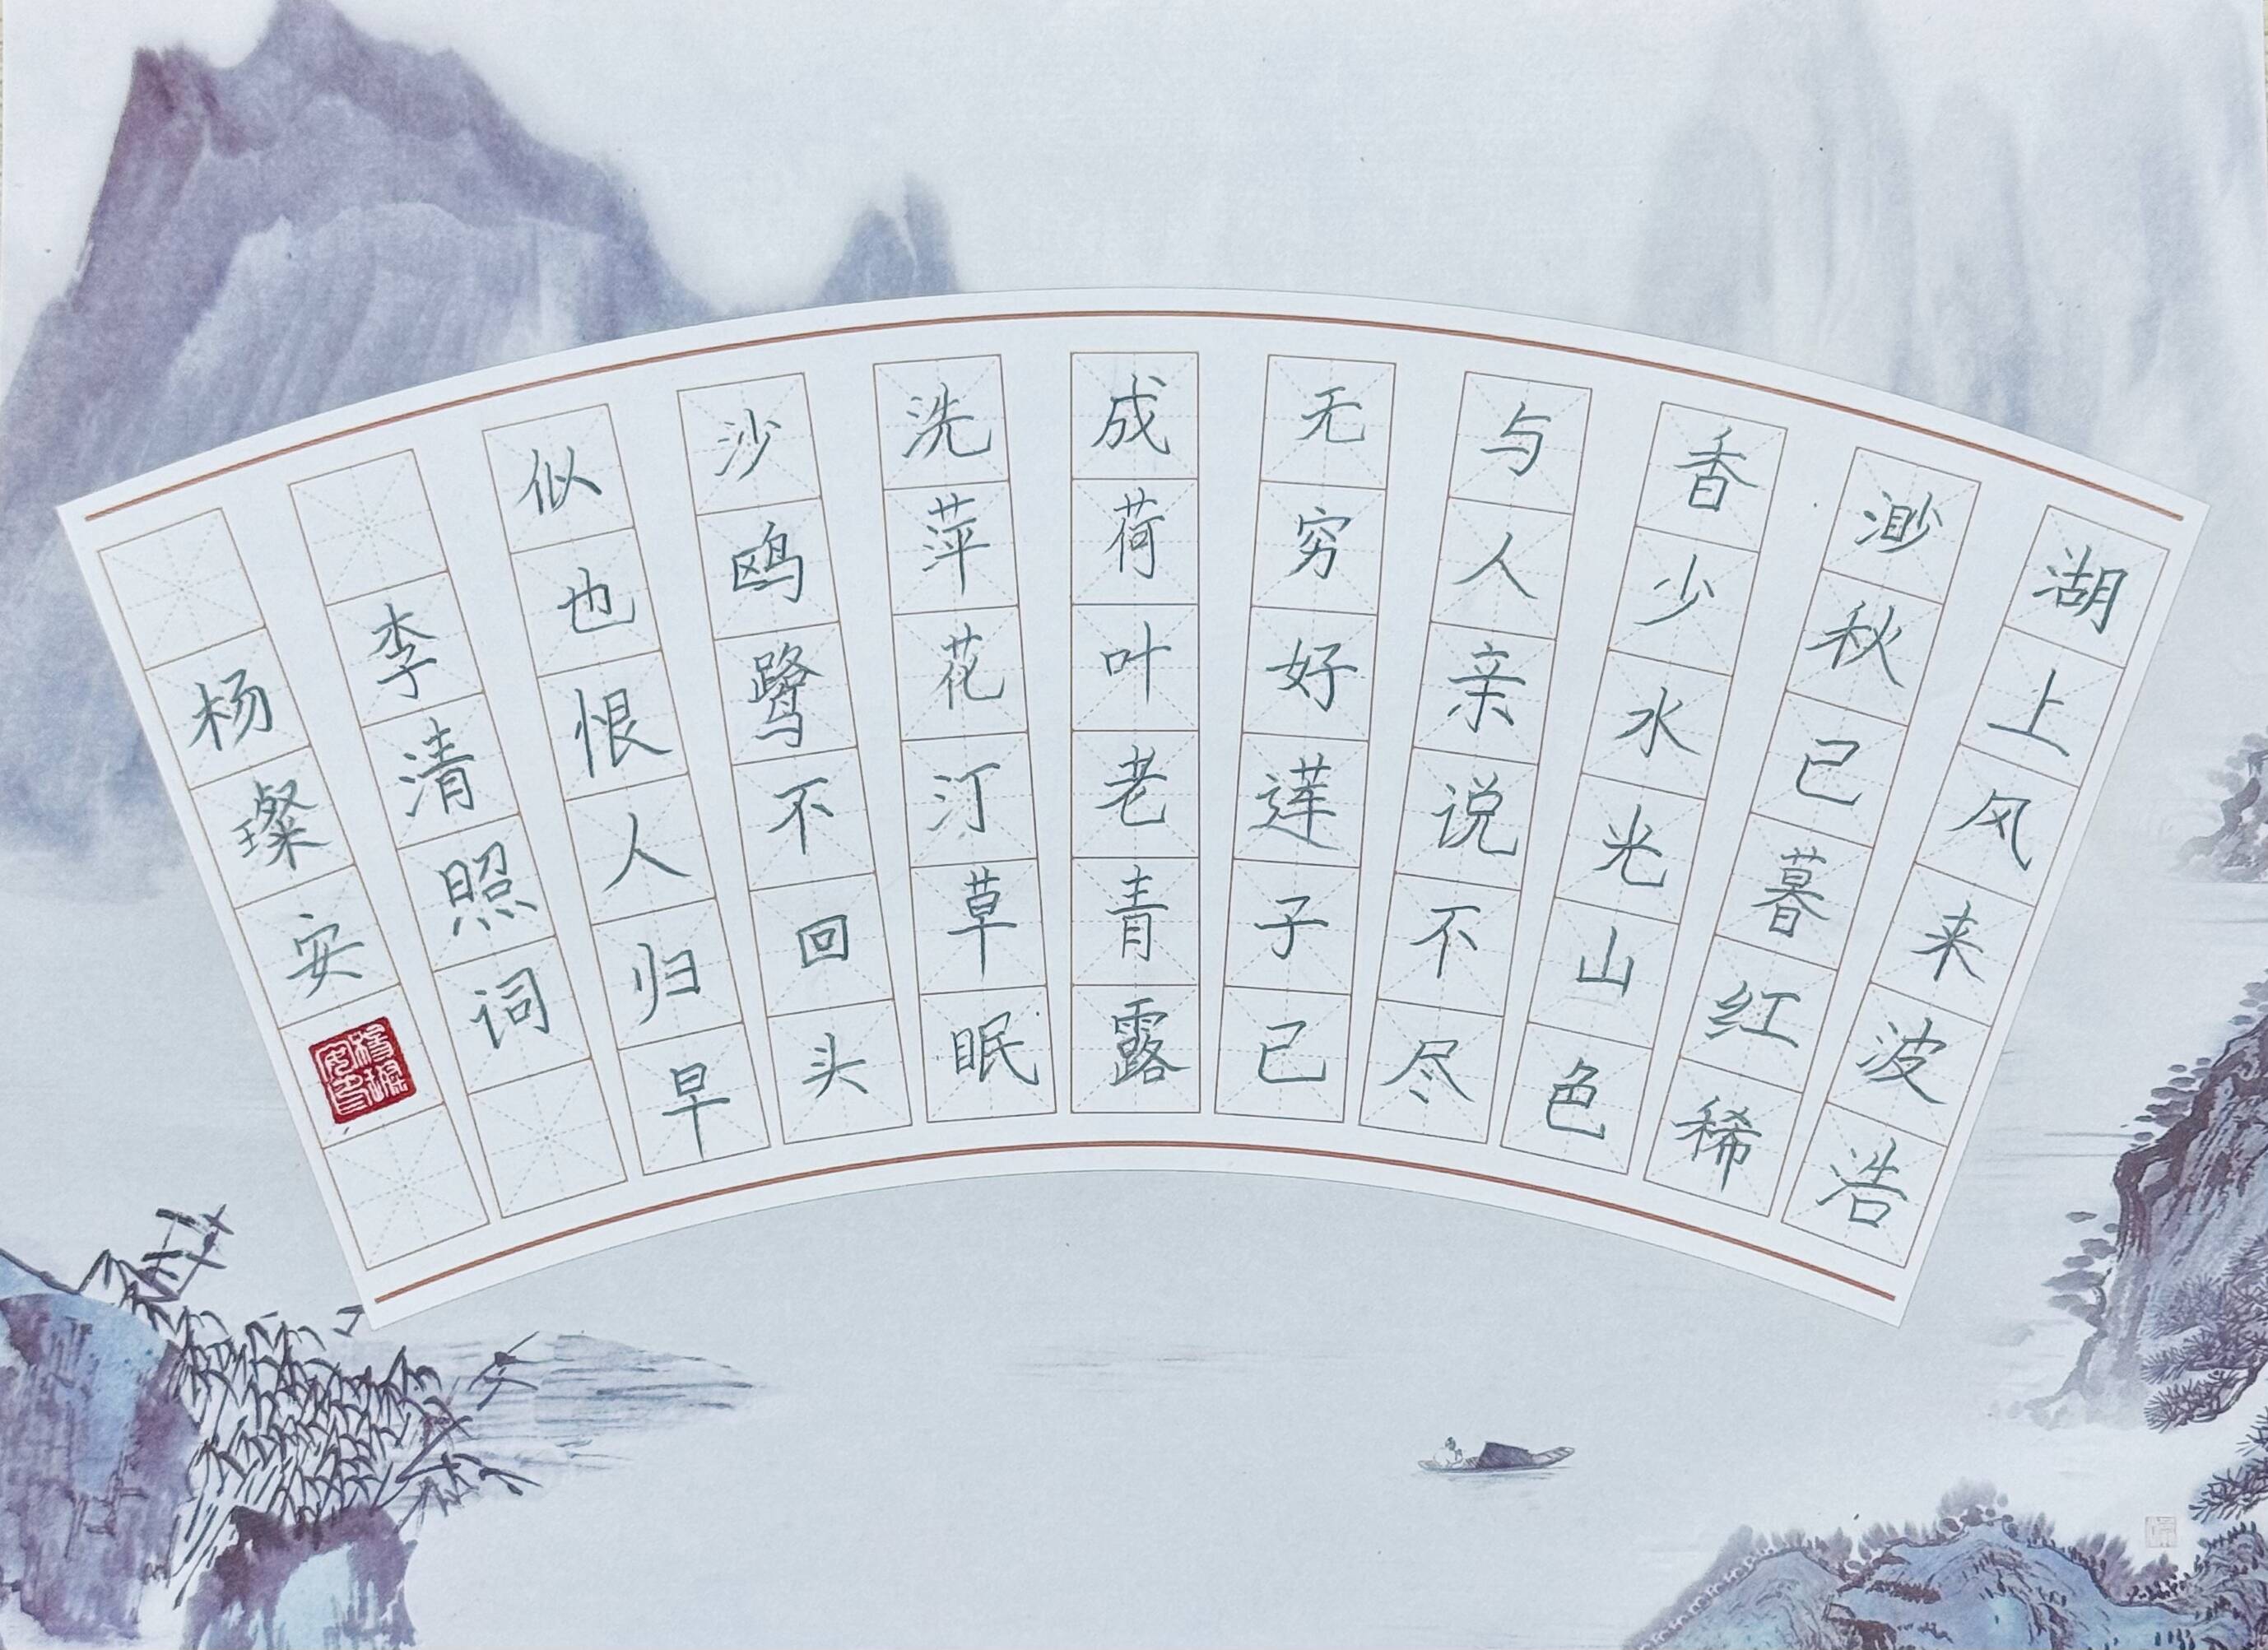 湖上风来波浩
渺秋已暮红稀
香少水光山色
与人亲说不尽
无穷好莲子已
成荷叶老青露
洗萍花汀草眠
沙鸥鹭不回头
似也恨人归早
李清照词
杨璨安